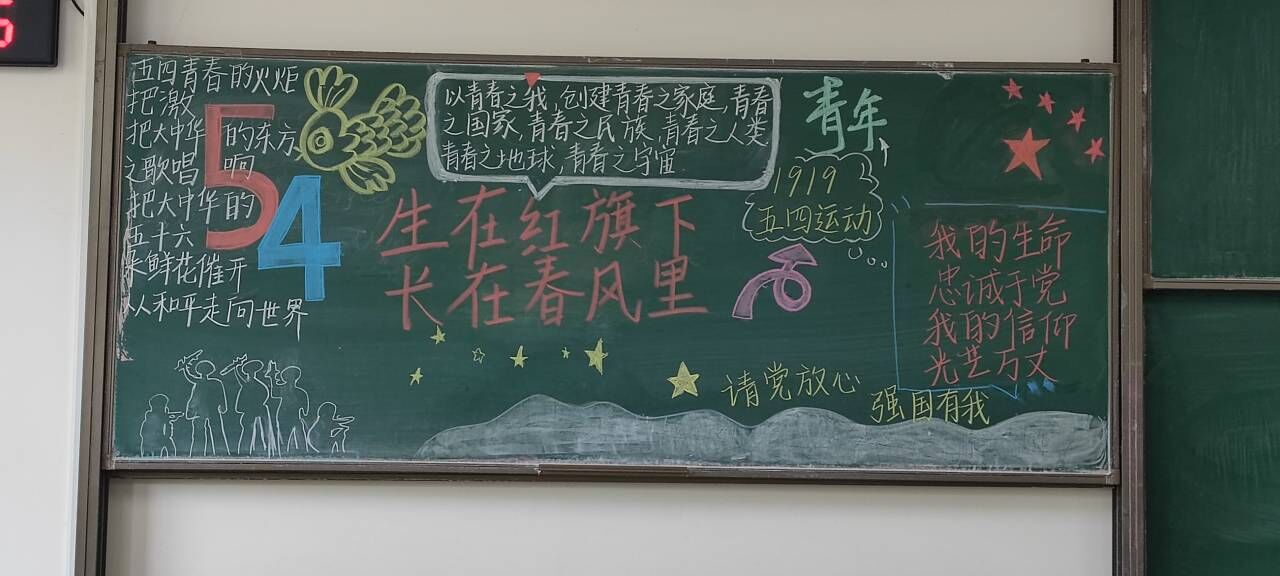 五四青春的火炬
把激
把大中华 的东方
之歌唱 响
把大中华的
五十六
来鲜花催开
从和平走向世界
54
以青春之我,创建青春之家庭,青春
之国家,青春之民族,青春之人类
青春之地球,青春之宇宙
生在红旗下
长在春风里
青年
1919
五四运动
我的生命
忠诚于党
我的信仰
光芒万丈
请党放心
强国有我